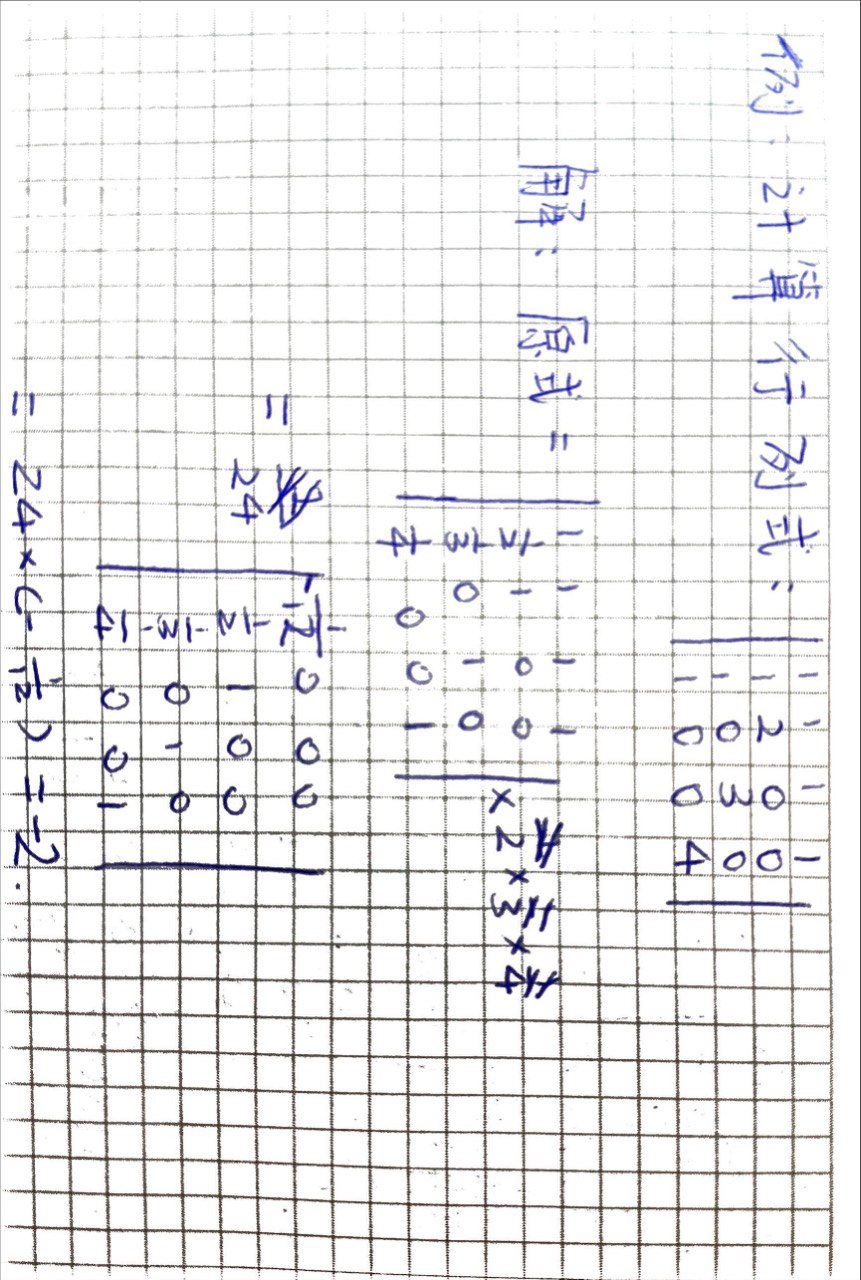 例：计算行列式：
1 1 1 1
1 2 0 0
1 0 3 0
1 0 0 4
解：原式 =
1 1 1 1
1/2 1 0 0
1/3 0 1 0
1/4 0 0 1
×2×3×4
= 24
-1/12 0 0 0
1/2 1 0 0
1/3 0 1 0
1/4 0 0 1
= 24×(-1/12) = -2.